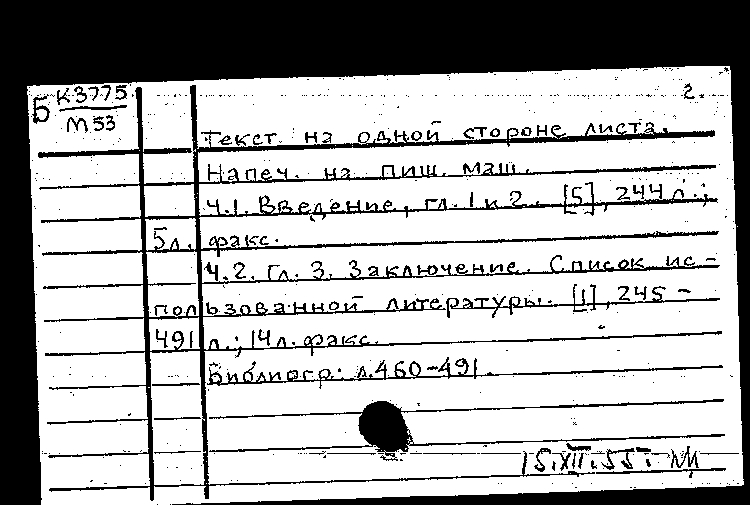 Б К3775
М53
2.
Текст на одной стороне листа.
Напеч. на пиш. маш.
Ч.1. Введение, гл. 1 и 2. [5], 244 л.;
5л. факс.
Ч.2. Гл. 3. Заключение. Список ис-
пользованной литературы. [1], 245-
491 л.; 14л. факс.
Библиогр: л.460-491.
15.XII.55г.